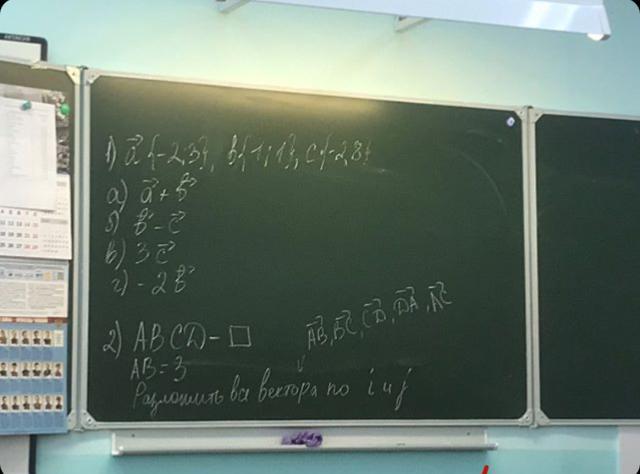 1) a⃗ {-2;3}, b{-1;1}, c{-2;8}
а) a⃗ + b⃗
б) b⃗ - c⃗
в) 3 c⃗
г) - 2 b⃗
2) ABCD - □
AB⃗, BC⃗, CD⃗, DA⃗, AC⃗
AB = 3
Разложить все вектора по i и j